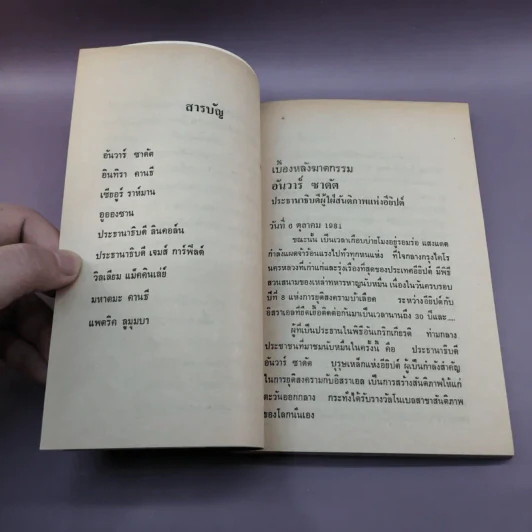 สารบัญ
อันวาร์ ซาดัต
อินทิรา คานธี
เซียอูร์ ราห์มาน
อูอองซาน
ประธานาธิบดี ลินคอล์น
ประธานาธิบดี เจมส์ การ์ฟิลด์
วิลเลียม แม็คคินเลย์
มหาตมะ คานธี
แพตริค ลูมุมบา
เบื้องหลังฆาตกรรม
อันวาร์ ซาดัต
ประธานาธิบดีผู้ใฝ่สันติภาพแห่งอียิปต์
วันที่ 6 ตุลาคม 1981
ขณะนั้น เป็นเวลาเกือบบ่ายโมงอยู่รอมร่อ แสงแดด
กำลังแผดจ้าร้อนแรงไปทั่วทุกหนแห่ง ที่ใจกลางกรุงไคโร
นครหลวงที่เก่าแก่และรุ่งเรืองที่สุดของประเทศอียิปต์ มีพิธี
สวนสนามของเหล่าทหารหาญนับหมื่น เนื่องในวันครบรอบ
ปีที่ 8 แห่งการยุติสงครามบ้าเลือด ระหว่างอียิปต์กับ
อิสราเอลที่ยืดเยื้อติดต่อกันมาเป็นเวลานานถึง 30 ปีและ....
ผู้ที่เป็นประธานในพิธีอันเกริกเกียรติ ท่ามกลาง
ประชาชนที่มาชมนับหมื่นในครั้งนี้ คือ ประธานาธิบดี
อันวาร์ ซาดัต บุรุษเหล็กแห่งอียิปต์ ผู้เป็นกำลังสำคัญ
ในการยุติสงครามกับอิสราเอล เป็นการสร้างสันติภาพให้แก่
ตะวันออกกลาง กระทั่งได้รับรางวัลโนเบลสาขาสันติภาพ
ของโลกนั่นเอง